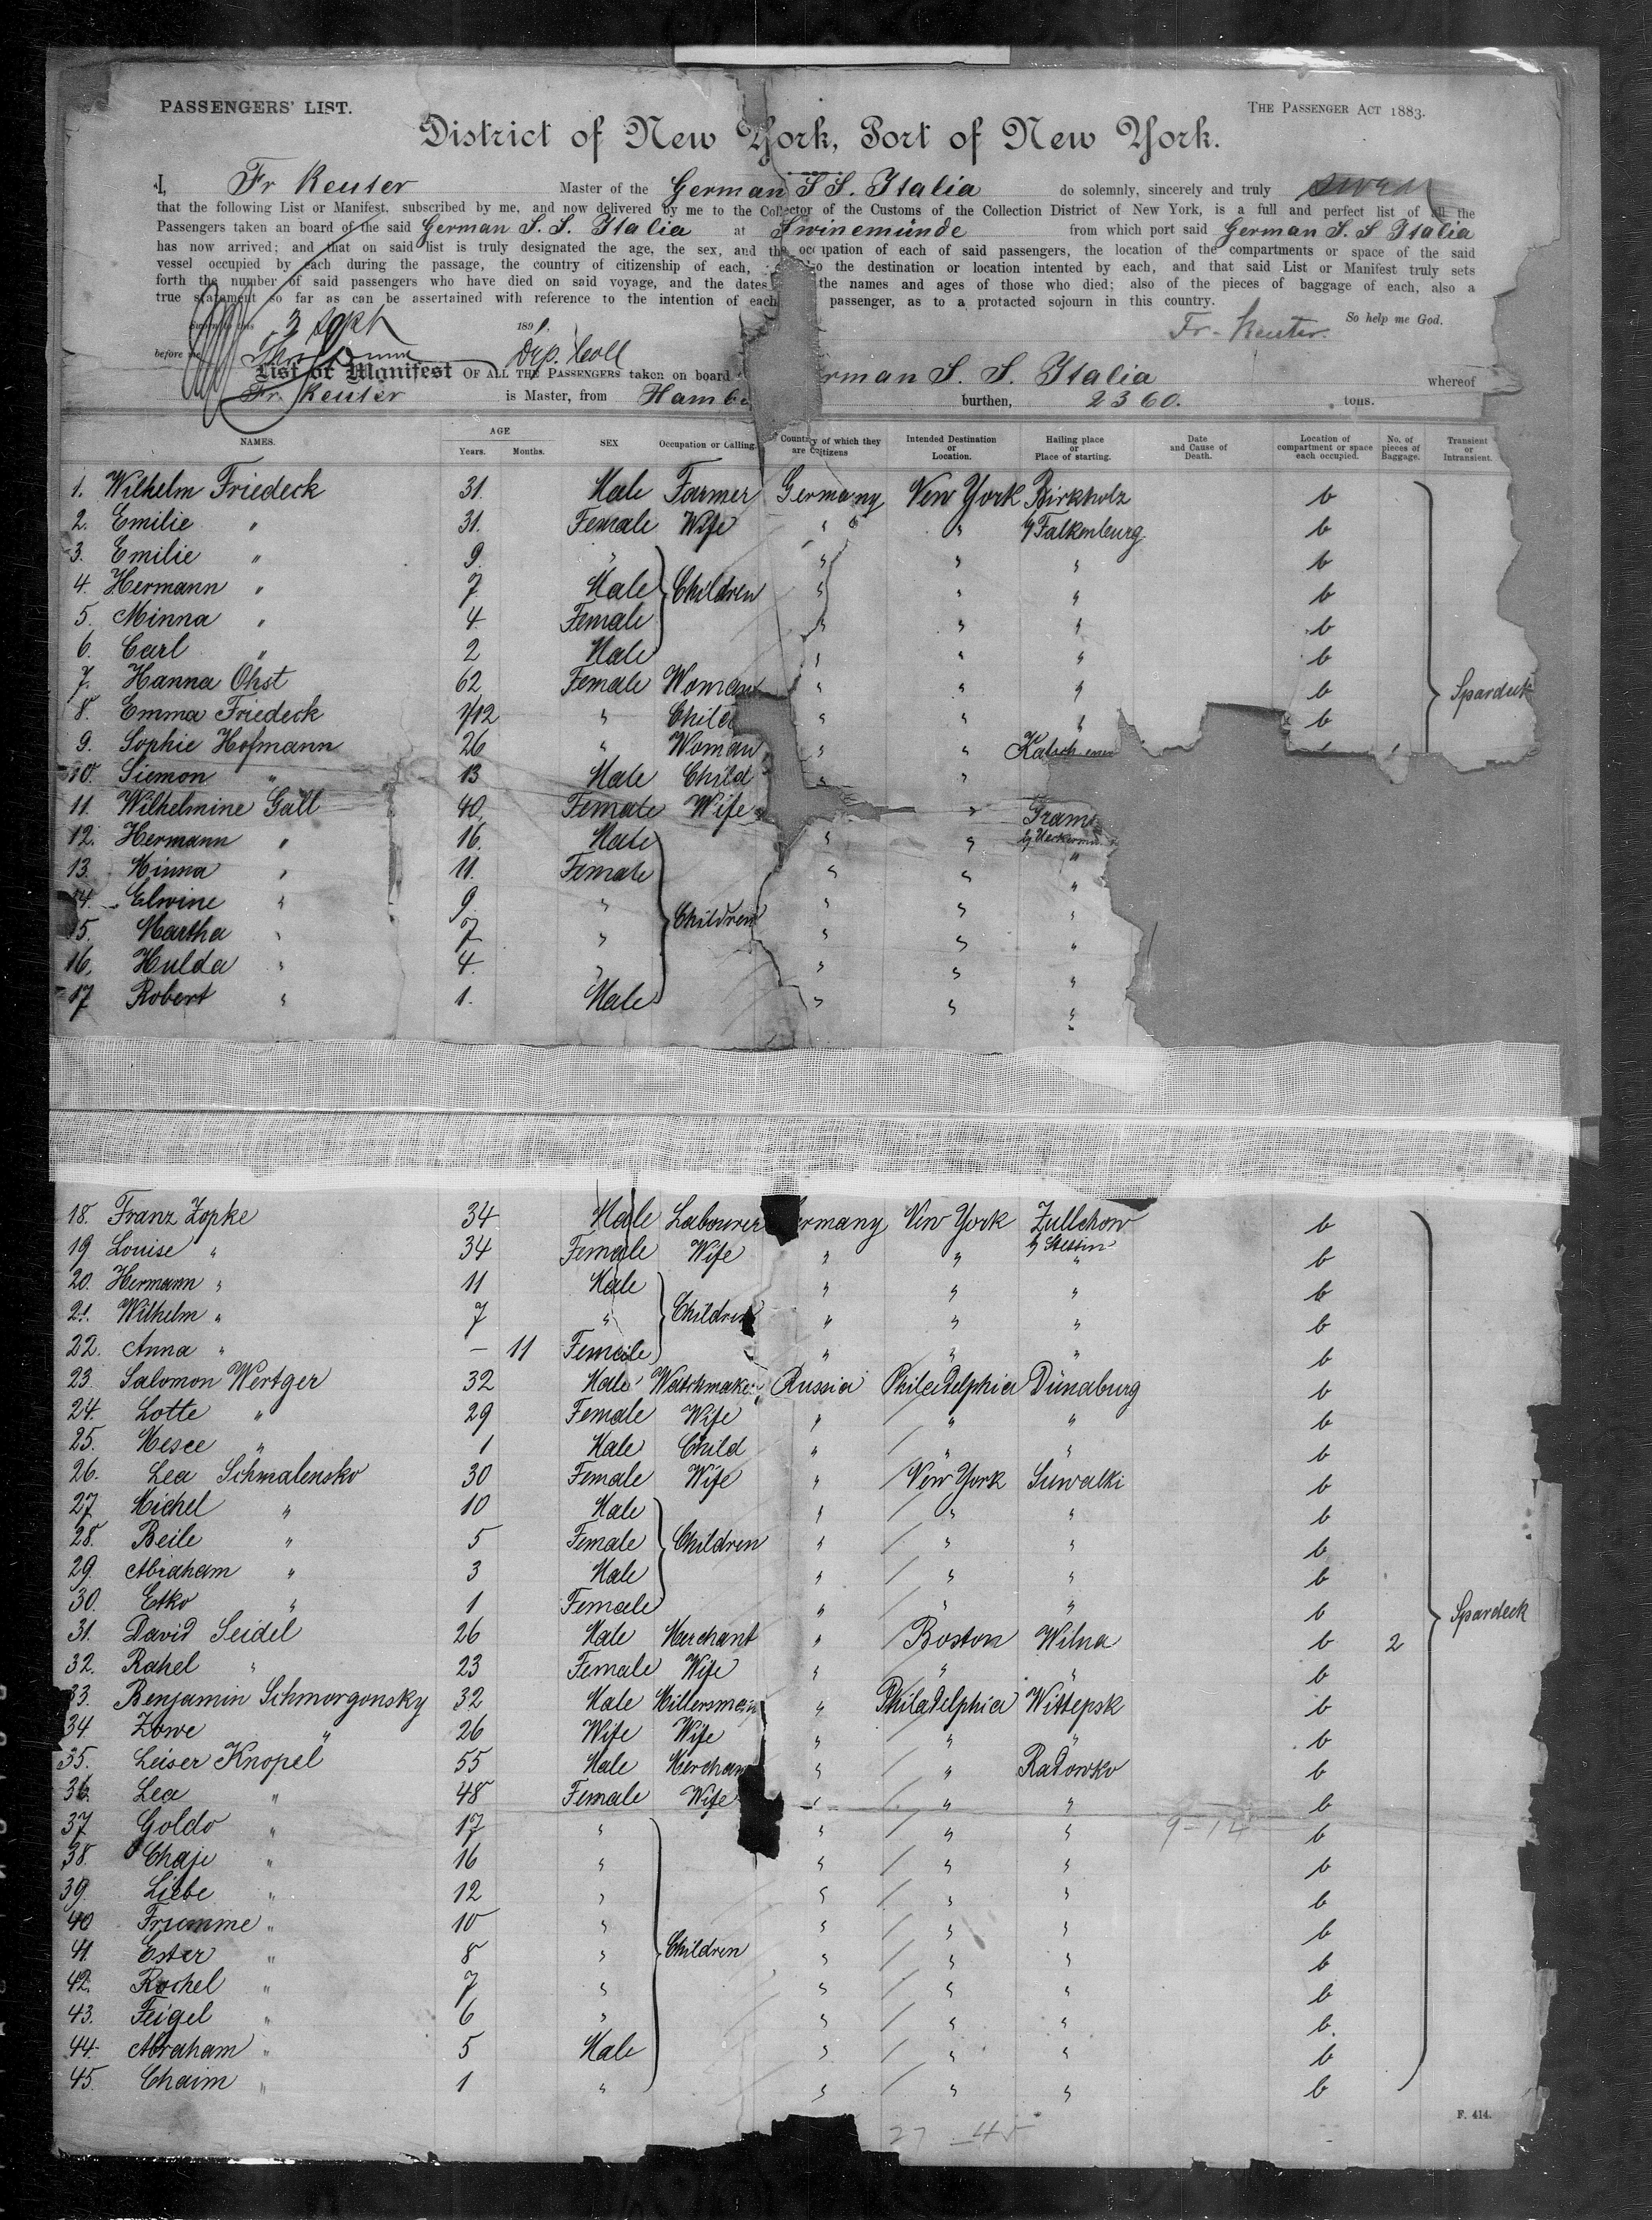 PASSENGERS' LIST.
THE PASSENGER ACT 1883.
District of New York, Port of New York.
I, Fr Reuter Master of the German S S. Italia do solemnly, sincerely and truly swear
that the following List or Manifest, subscribed by me, and now delivered by me to the Collector of the Customs of the Collection District of New York, is a full and perfect list of all the
Passengers taken an board of the said German S. S. Italia at Swinemünde from which port said German S. S Italia
has now arrived; and that on said list is truly designated the age, the sex, and the occupation of each of said passengers, the location of the compartments or space of the said
vessel occupied by each during the passage, the country of citizenship of each, also the destination or location intented by each, and that said List or Manifest truly sets
forth the number of said passengers who have died on said voyage, and the dates the names and ages of those who died; also of the pieces of baggage of each, also a
true statement so far as can be assertained with reference to the intention of each passenger, as to a protacted sojourn in this country.
So help me God.
3 Sept 189
Fr. Reuter.
before me Dep. Coll
List or Manifest OF ALL THE PASSENGERS taken on board German S. S. Italia whereof
Fr. Reuter is Master, from Hambu burthen, 2360. tons.
NAMES. AGE Years. Months. SEX Occupation or Calling. Country of which they are Citizens Intended Destination or Location. Hailing place or Place of starting. Date and Cause of Death. Location of compartment or space each occupied. No. of pieces of Baggage. Transient or Intransient.
1. Wilhelm Friedeck 31. Male Farmer Germany New York Birkholz b
2. Emilie " 31. Female Wife " " " b/Falkenburg b
3. Emilie " 9. " " " " b
4. Hermann " 7 Male Children " " " b
5. Minna " 4 Female " " " b
6. Carl " 2 Male " " " b
7. Hanna Ohst 62 Female Woman " " " b Spardeck
8. Emma Friedeck 1/12 " Child " " " b
9. Sophie Hofmann 26 " Woman " "
10. Siemon " 13 Male Child " "
11. Wilhelmine Gall 40. Female Wife " Gram
12. Hermann " 16. Male " "
13. Minna " 11. Female " " "
14. Elwine " 9. " " " "
15. Martha " 7 " Children " " "
16. Hulda " 4. " " " "
17 Robert " 1. Male " " "
18. Franz Zopke 34 Male Labourer Germany New York Züllchow b
19 Louise " 34 Female Wife " " b/ Stettin " b
20. Hermann " 11 Male " " " b
21. Wilhelm " 7 " Children " " " b
22. Anna " – 11 Female " " " b
23. Salomon Wertger 32 Male Watchmaker Russia Philadelphia Dünaburg b
24. Lotte " 29 Female Wife " " " b
25. Mesce " 1 Male Child " " " b
26. Lea Schmalensko 30 Female Wife " New York Suwalki b
27. Michel " 10 Male " " " b
28. Beile " 5 Female Children " " " b
29. Abraham " 3 Male " " " b
30. Etko " 1 Female " " " b Spardeck
31. David Seidel 26 Male Merchant " Boston Wilna b 2
32. Rahel " 23 Female Wife " " " b
33. Benjamin Schmorgonsky 32 Male Millersman " Philadelphia Wittepsk b
34 Zowe " 26 Wife Wife " " " b
35. Leiser Knopel 55 Male Merchant " " Radowko b
36. Lea " 48 Female Wife " " " b
37 Goldo " 17 " " " " 9-14 b
38. Chaje " 16 " " " " b
39. Liebe " 12 " " " " b
40 Frumme " 10 " " " " b
41 Ester " 8 " Children " " " b
42. Rochel " 7 " " " " b
43. Feigel " 6 " " " " b.
44. Abraham " 5 Male " " " b
45. Chaim " 1 " " " " b
F. 414.
27 –45